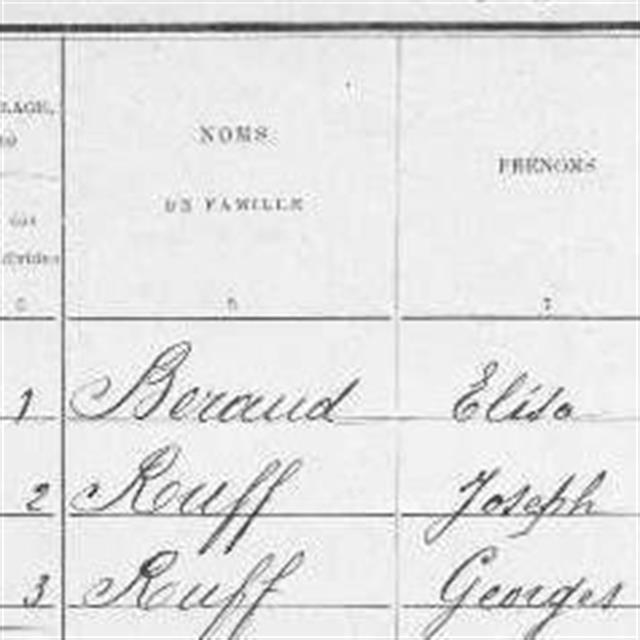 NOMS
DE FAMILLE
PRENOMS
6
7
1 Beraud Elisa
2 Rouff Joseph
3 Rouff Georges